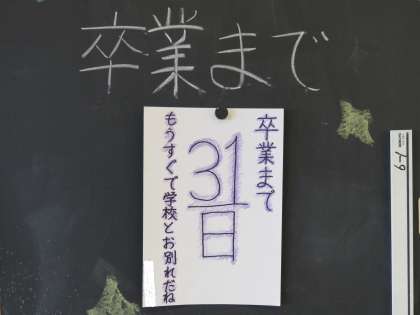 卒業まで
卒業まで
31
日
もうすぐで学校とお別れだね